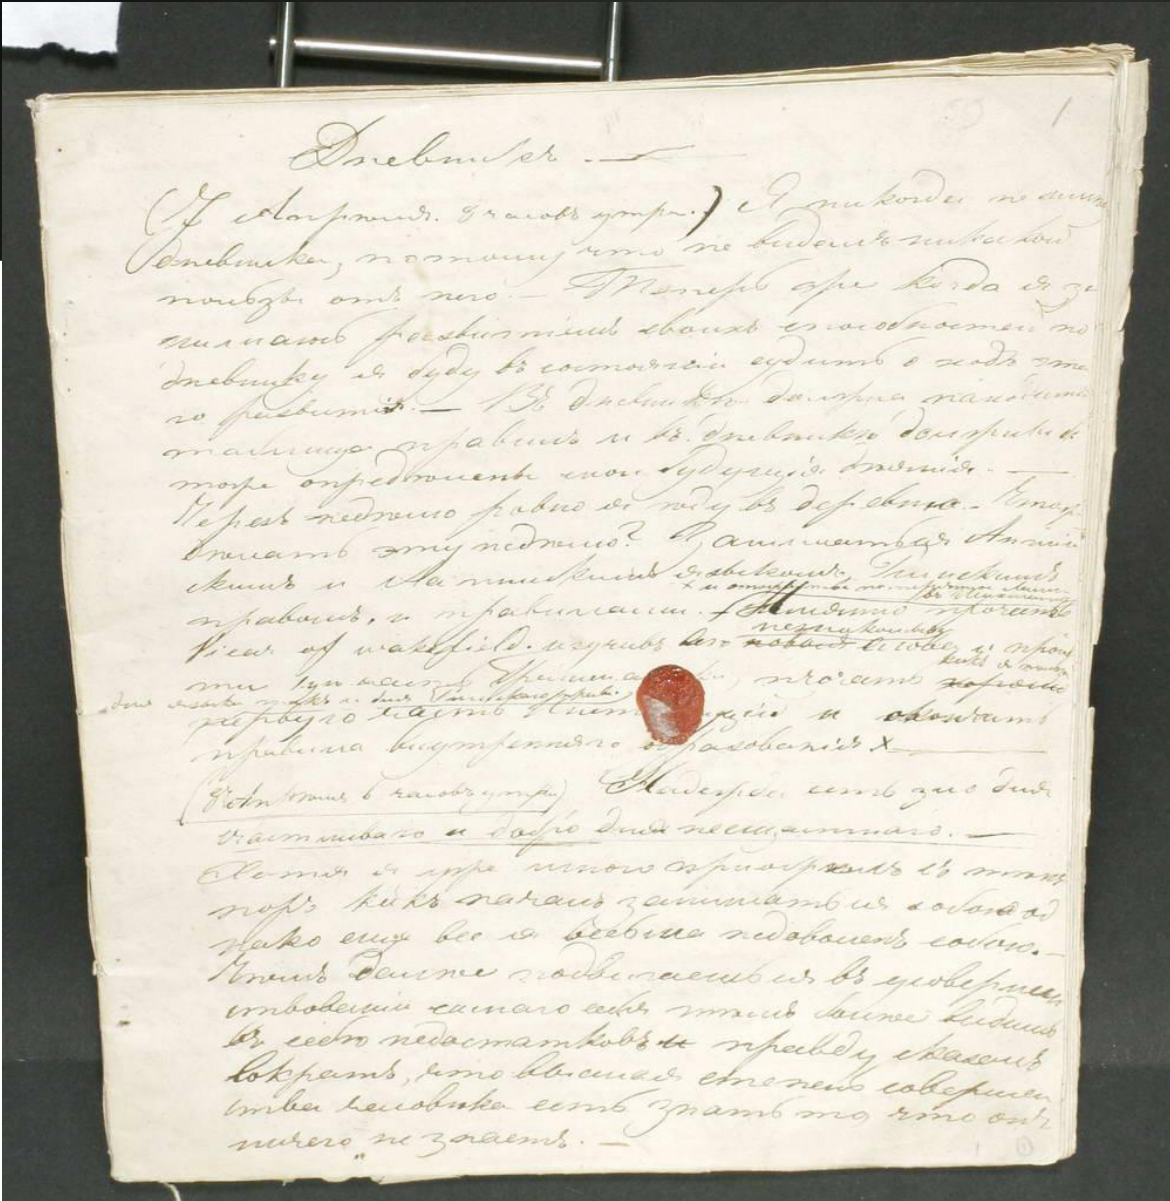 Дневникъ. —
(7 Апрѣля. 8 часовъ утра.) Я никогда не имѣлъ
дневника, потому что не видалъ никакой
пользы отъ него. — Теперь же когда я за
нимаюсь развитіемъ своихъ способностей по
дневнику я буду въ состояніи судить о ходѣ это
го развитія. — Въ дневникѣ должна находиться
таблица правилъ и въ дневникѣ должны быть
тоже опредѣлены мои будущія дѣянія. —
Черезъ недѣлю ровно я ѣду въ деревню. — Что же
дѣлать эту недѣлю? Заниматься Англій
скимъ и Латинскимъ языкомъ, Римскимъ
х и отыграть потерянное Лари
въ шахматы
правомъ, и правилами. — Имянно прочесть
незнакомыя
Vicar of wakefield. изучивъ всѣ новыя слова и прой
какъ с пользою
ти 1ую часть Грамматики, прочесть
для языка такъ и для Римскаго права
первую часть Институцій и окончить
правила внутренняго образованія х
(8 Апрѣля 6 часовъ утра) Надежда есть зло для
счастливаго и добро для несчастнаго. —
Хотя я уже много пріобрѣлъ съ тѣхъ
поръ какъ началъ заниматься собою од
нако еще все я весьма недоволенъ собою. —
Чѣмъ далѣе подвигаешься въ усовершен
ствованіи самаго себя тѣмъ болѣе видишь
въ себѣ недостатковъ и правду сказалъ
Сократъ, что высшая степень совершен
ства человѣка есть знать то что онъ
ничего не знаетъ. —
1